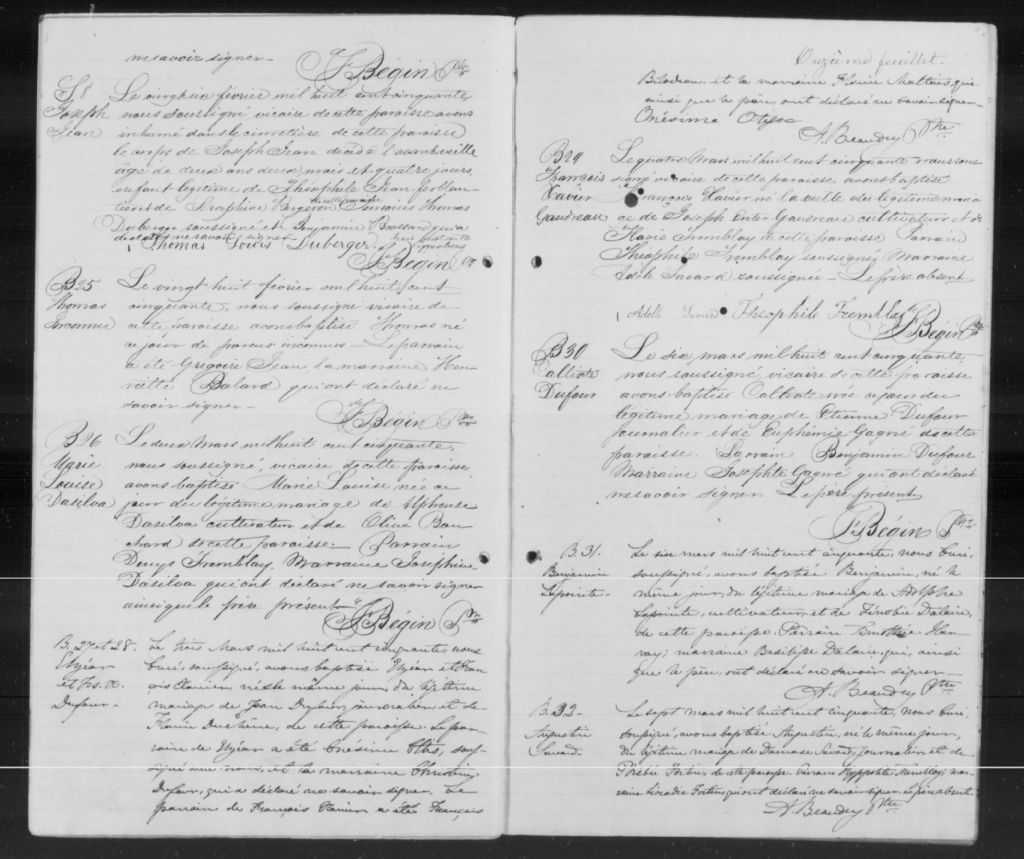 ne savoir signer -
F Bégin Ptre
S 8
Joseph
Jean
Le cinq février mil huit cent cinquante
nous soussigné, vicaire de cette paroisse avons
inhumé dans le cimetière de cette paroisse
le corps de Joseph Jean décédé
âgé de deux ans deux mois et quatre jours,
enfant légitime de Théophile Jean
et de Séraphine Bergeron Thomas
Duberger soussigné et Benjamin Brassard qui a
déclaré ne savoir signer.
Thomas Louis Duberger.
F Bégin Ptre
B 25
Thomas
Inconnu
Le vingt huit février mil huit cent
cinquante, nous soussigné vicaire de
cette paroisse avons baptisé Thomas né
ce jour de parens inconnus - Le parrain
a été Grégoire Jean la marraine Hen-
riette Balard qui ont déclaré ne
savoir signer -
F Bégin Ptre
B 26
Marie
Louise
Dasilva
Le deux Mars mil huit cent cinquante,
nous soussigné, vicaire de cette paroisse
avons baptisé Marie Louise née ce
jour du légitime mariage de Alphonse
Dasilva cultivateur et de Olive Bou
chard de cette paroisse. Parrain
Denys Tremblay, Marraine Josephine
Dasilva qui ont déclaré ne savoir signer
ainsi que le père présent
F Bégin Ptre
B. 27 et 28.
Elzéar
et Frs. X.
Dufour -
Le trois Mars mil huit cent cinquante, nous
curé, soussigné, avons baptisé Elzéar et Fran
çois Xavier, nés le même jour, du légitime
mariage de Jean Dufour, journalier, et de
Marie Duchêne, de cette paroisse. Le par-
rain de Elzéar a été Onésime Otis, sous-
signé avec nous, et la marraine Christine
Dufour, qui a déclaré ne savoir signer. Le
parrain de François Xavier a été François
Onzième feuillet.
Bilodeau et la marraine Mathieu, qui
ainsi que le père, ont déclaré ne savoir signer.
Onésime Otis
A. Beaudry Ptre
B 29
François
Xavier
Gaudreau
Le quatre Mars mil huit cent cinquante nous sous
signé vicaire de cette paroisse avons baptisé
François Xavier né la veille du légitime maria
ge de Joseph Gaudreau cultivateur et de
Marie Tremblay de cette paroisse Parrain
Théophile Tremblay soussigné, Marraine
Adèle Savard soussignée - Le père absent
Adelle Savard Théophile Tremblay
F Bégin Ptre
B 30
Callixte
Dufour
Le six mars mil huit cent cinquante,
nous soussigné, vicaire de cette paroisse
avons baptisé Callixte née ce jour du
légitime mariage de Etienne Dufour
journalier et de Euphémie Gagné de cette
paroisse. Parrain Benjamin Dufour
Marraine Josephte Gagné qui ont déclaré
ne savoir signer Le père présent
F Bégin Ptre
B. 31.
Benjamin
Lapointe -
Le six mars mil huit cent cinquante, nous curé,
soussigné, avons baptisé Benjamin, né le
même jour, du légitime mariage de Adolphe
Lapointe, cultivateur, et de Zénobie Dalaire,
de cette paroisse. Parrain Timothée Har
vay; marraine Basilisse Dalaire, qui, ainsi
que le père, ont déclaré ne savoir signer -
A. Beaudry Ptre
B. 32 -
Augustin
Savard.
Le sept mars mil huit cent cinquante, nous curé,
soussigné, avons baptisé Augustin, né le même jour,
du légitime mariage de Damase Savard, journalier et de
Phébé Fortin, de cette paroisse. Parrain Hyppolite Tremblay; mar-
raine Léocadie Fortin, qui ont déclaré ne savoir signer. Le père absent.
A. Beaudry Ptre